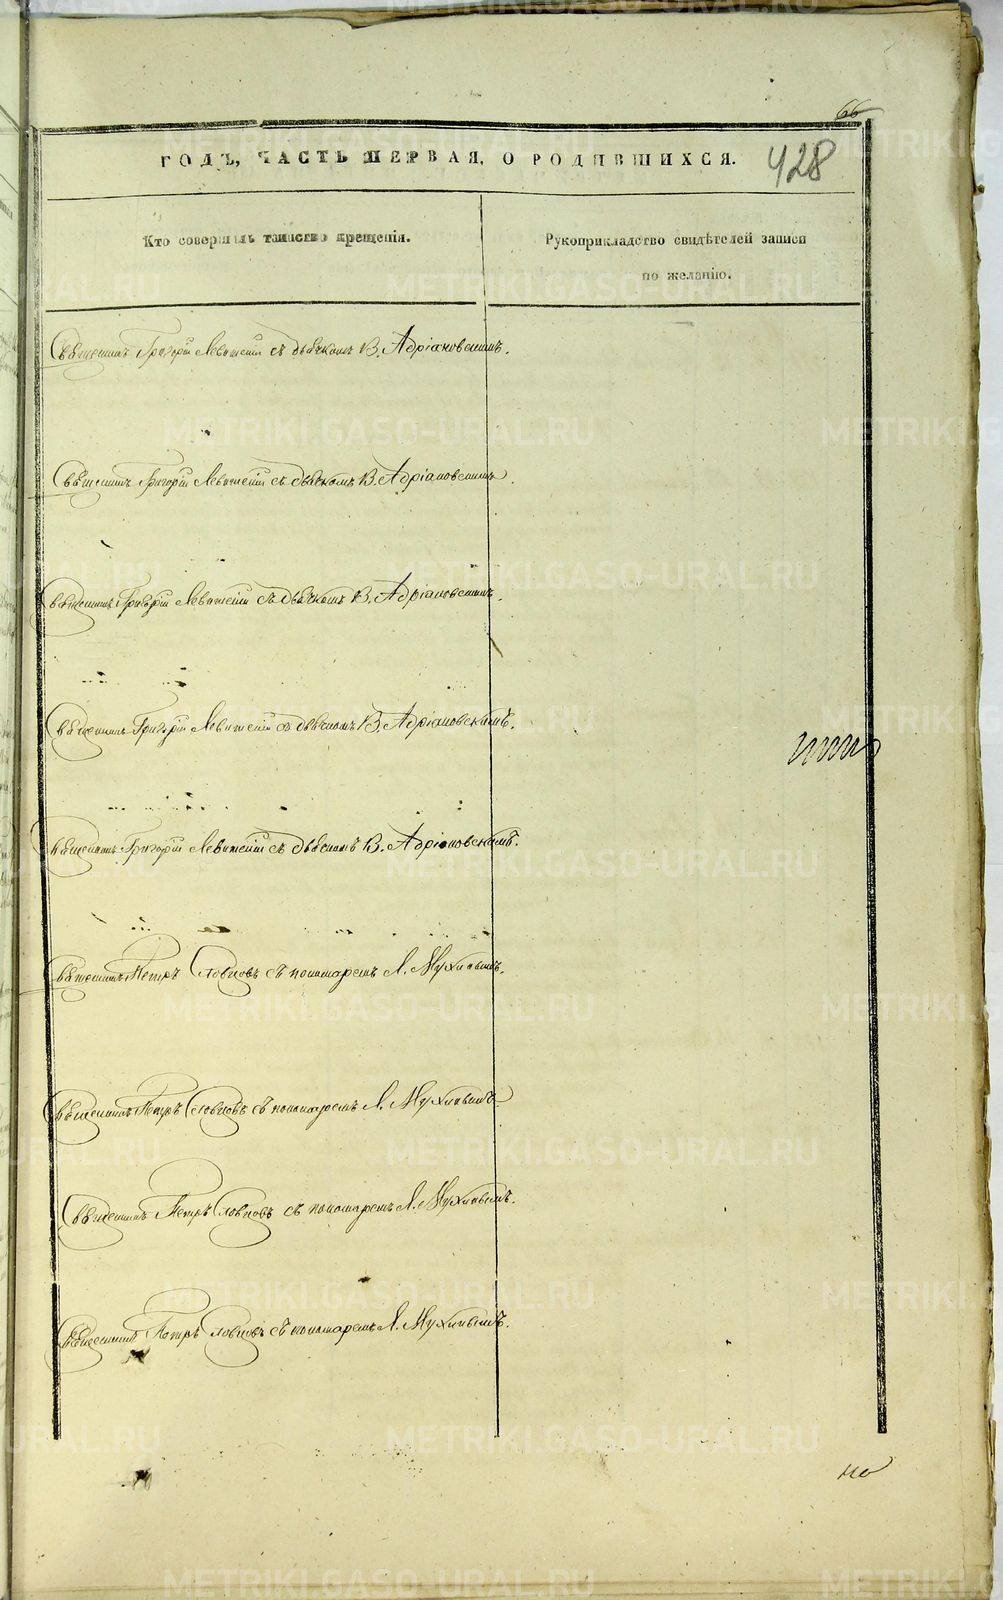 66
ГОДЪ, ЧАСТЬ ПЕРВАЯ, О РОДИВШИХСЯ. 428
Кто совершалъ таинство крещенія.
Рукоприкладство свидѣтелей записи
по желанію.
Священникъ Григорій Левитскій съ дьячкомъ В. Адріановскимъ.
Священникъ Григорій Левитскій съ дьячкомъ В. Адріановскимъ.
Священникъ Григорій Левитскій съ дьячкомъ В. Адріановскимъ.
Священникъ Григорій Левитскій съ дьячкомъ В. Адріановскимъ.
Священникъ Григорій Левитскій съ дьячкомъ В. Адріановскимъ.
Священникъ Петръ Словцовъ съ пономаремъ Л. Мухинымъ.
Священникъ Петръ Словцовъ съ пономаремъ Л. Мухинымъ.
Священникъ Петръ Словцовъ съ пономаремъ Л. Мухинымъ.
Священникъ Петръ Словцовъ съ пономаремъ Л. Мухинымъ.
METRIKI.GASO-URAL.RU